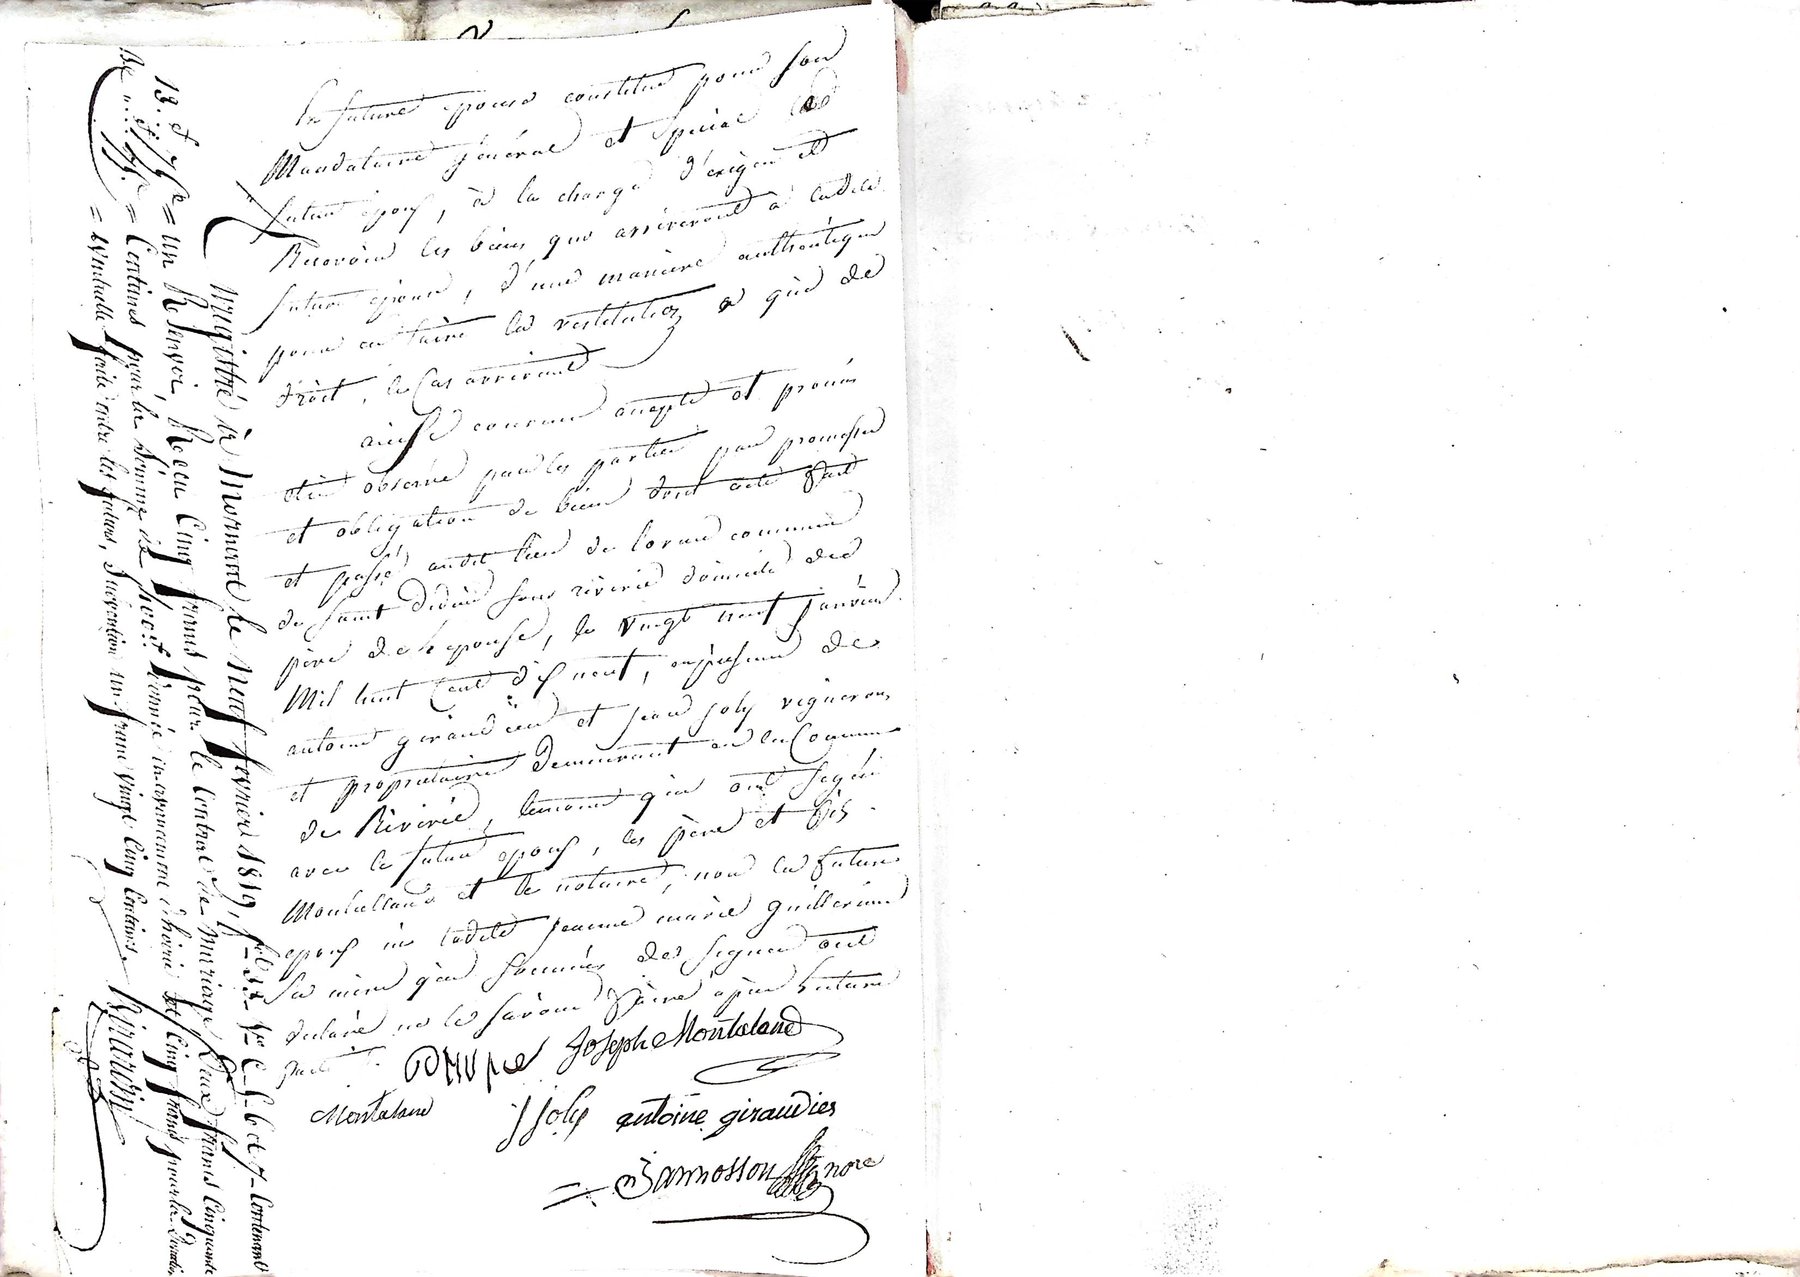 la future epouse constitue pour son
Mandataire général et spécial led
futur epoux, à la charge d'exiger et
Recevoir les biens qui arriveront à ladite
future epouse, d'une manière authentique
pour en faire la restitution a qui de
droit, le Cas arrivant
ainsi convenu accepté et promis
etre observé par les parties par promesses
et obligation de biens dont acte fait
et passé audit lieu de lorans commune
de saint didier sous riverie domicile des
père de l'epouse, le vingt neuf janvier
Mil huit Cent dix neuf, en présence de
antoine giraudier et jean joly vignerons
et proprietaires demeurant en la Commune
de Riverie, temoins qui ont signé
avec le futur epoux, les père et fils
Montalland et le notaire, non la future
epouse ni ladite jeanne marie guillerme
sa mère qui sommées de signer ont
declaré ne le savoir faire
Joseph Montaland
Montaland
j joly antoine giraudier
Bannosson nore
Enregistré à Mornant le neuf fevrier 1819, f° 33 V° C. 5. 6 et 7 Contenant
un Renvoi, Recu Cinq francs pour le Contrat de mariage, Deux francs Cinquante
Centimes pour la somme de donnée en avancement d'hoirie et Cinq francs pour la Donation
eventuelle faite entre les futurs, Subvention un franc vingt Cinq Centimes.
13. f 75 c